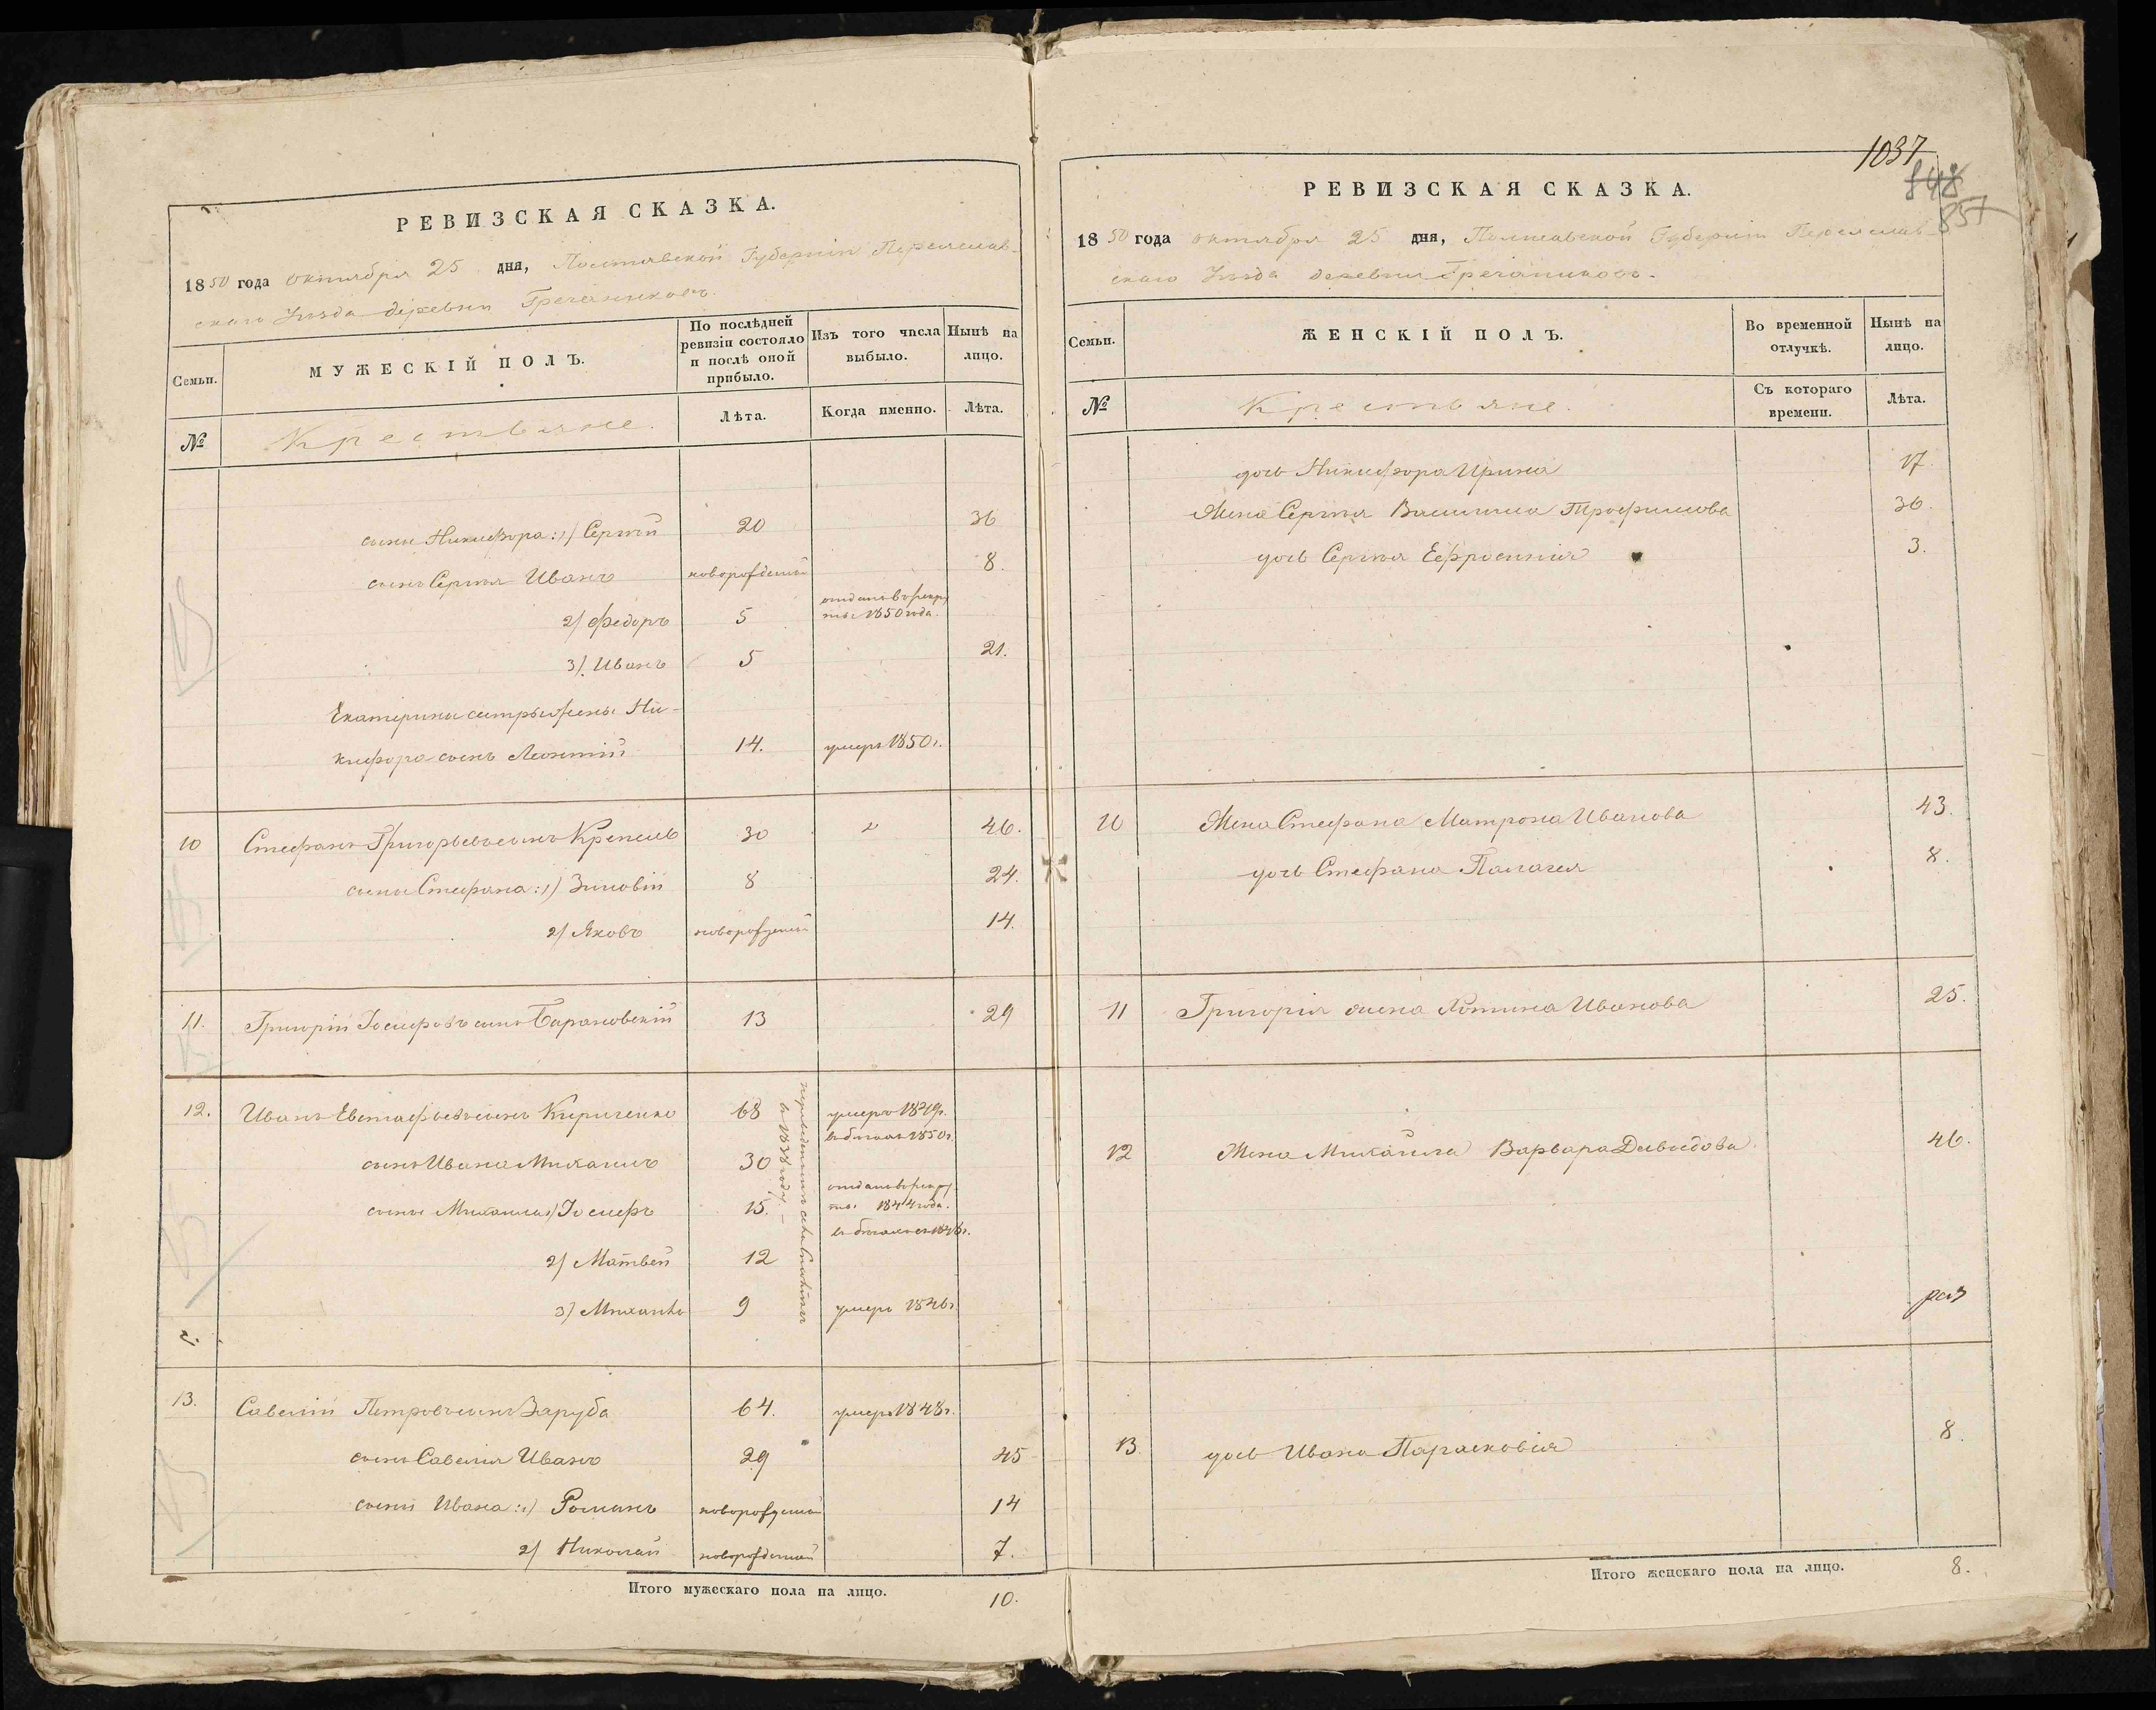 РЕВИЗСКАЯ СКАЗКА.
1850 года октября 25 дня, Полтавской Губерніи Переяслав-
скаго Уѣзда деревни Гречаниковъ.
Семьи.
МУЖЕСКІЙ ПОЛЪ.
По послѣдней
ревизіи состояло
и послѣ оной
прибыло.
Изъ того числа
выбыло.
Нынѣ на
лицо.
№
Крестьяне.
Лѣта.
Когда именно.
Лѣта.
сыны Никифора: 1) Сергѣй 20 36
сынъ Сергѣя Иванъ новорожденный 8.
2) Федоръ 5 отданъ в рекру
ты 1850 года.
3) Иванъ 5 21.
Екатерины сестры жены Ни-
кифора сынъ Леонтій 14. умеръ 1850 г.
10 Стефанъ Григорьевъ сынъ Крепель 30 46.
сыны Стефана: 1) Зиновій 8 24.
2) Яковъ новорожденный 14.
11. Григорій Іосифовъ сынъ Барановскій 13 29
12. Иванъ Евстафьевъ сынъ Кириченко 68 умеръ 1849 г.
в бѣгахъ 1850 г.
сынъ Ивана Михаилъ 30
сыны Михаила 1) Іосифъ 15. отданъ в рекру
ты 1844 года.
в бѣгахъ с 1848 г.
2) Матвей 12
3) Михаилъ 9 умеръ 1846 г.
в 1838 году. —
13. Савелій Петровъ сынъ Заруба 64. умеръ 1848 г.
сынъ Савелія Иванъ 29 45
сыны Ивана: 1) Романъ новорожденный 14
2) Николай новорожденный 7.
Итого мужескаго пола на лицо. 10.
1037
848
857
РЕВИЗСКАЯ СКАЗКА.
1850 года октября 25 дня, Полтавской Губерніи Переяслав-
скаго Уѣзда деревни Гречаниковъ.
Семьи.
ЖЕНСКІЙ ПОЛЪ.
Во временной
отлучкѣ.
Нынѣ на
лицо.
№
Крестьяне.
Съ котораго
времени.
Лѣта.
дочь Никифора Ирина 17.
Жена Сергѣя Василиса Трофимова 36.
дочь Сергѣя Ефросинія 3.
10 Жена Стефана Матрона Иванова 43.
дочь Стефана Палагея 8.
11 Григорія жена Фотина Иванова 25.
12 Жена Михаила Варвара Давыдова 46.
13. дочь Ивана Парасковія 8.
Итого женскаго пола на лицо. 8.